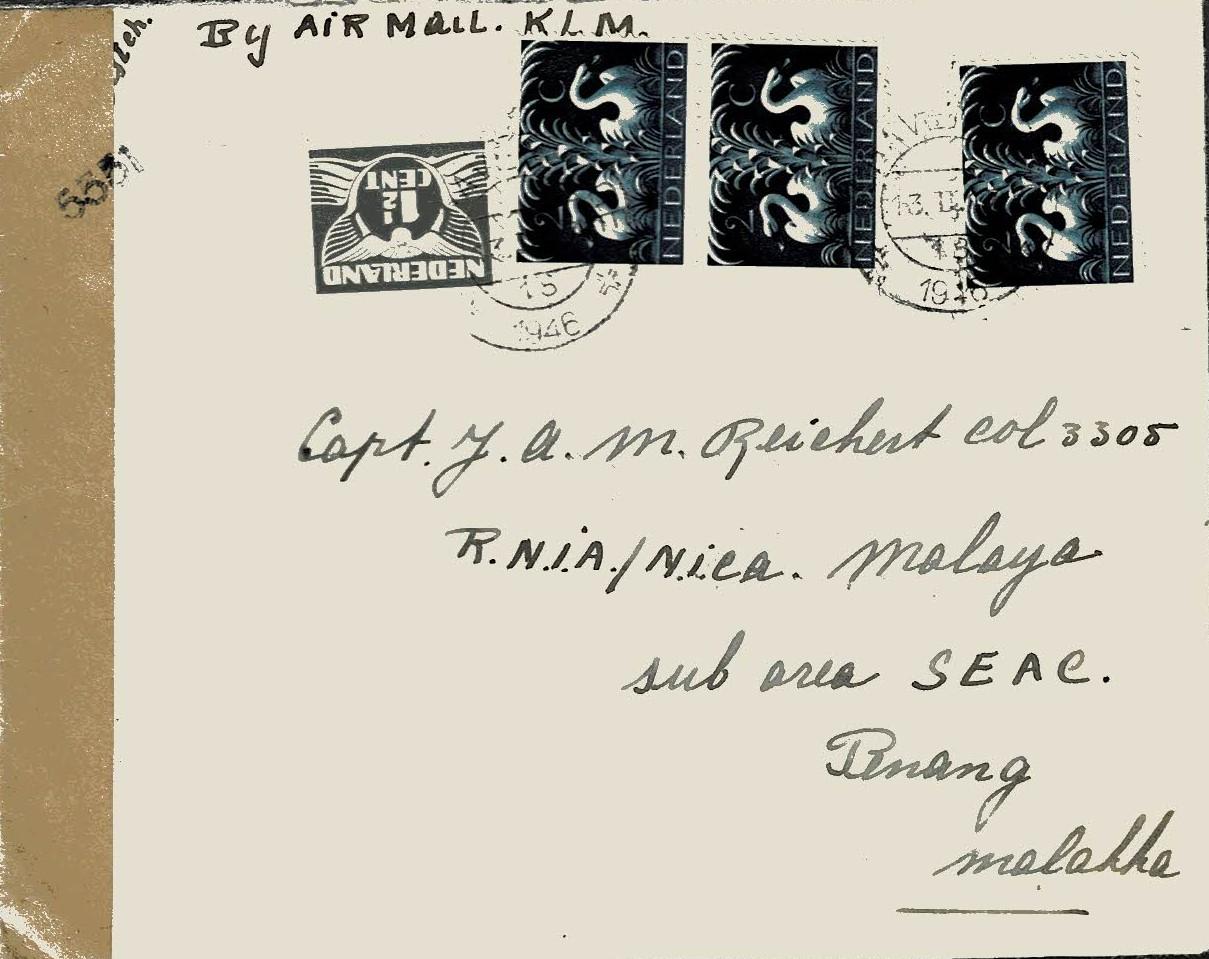 By AIR MAIL. K.L.M.
5551
1½
CENT
NEDERLAND
2 C
NEDERLAND
2 C
NEDERLAND
2 C
NEDERLAND
13
1946
13. II
13
1946
Capt. J. A. M. Reichert col 3305
R.N.I.A./N.i.c.a. Malaya
sub area SEAC.
Penang
malakka